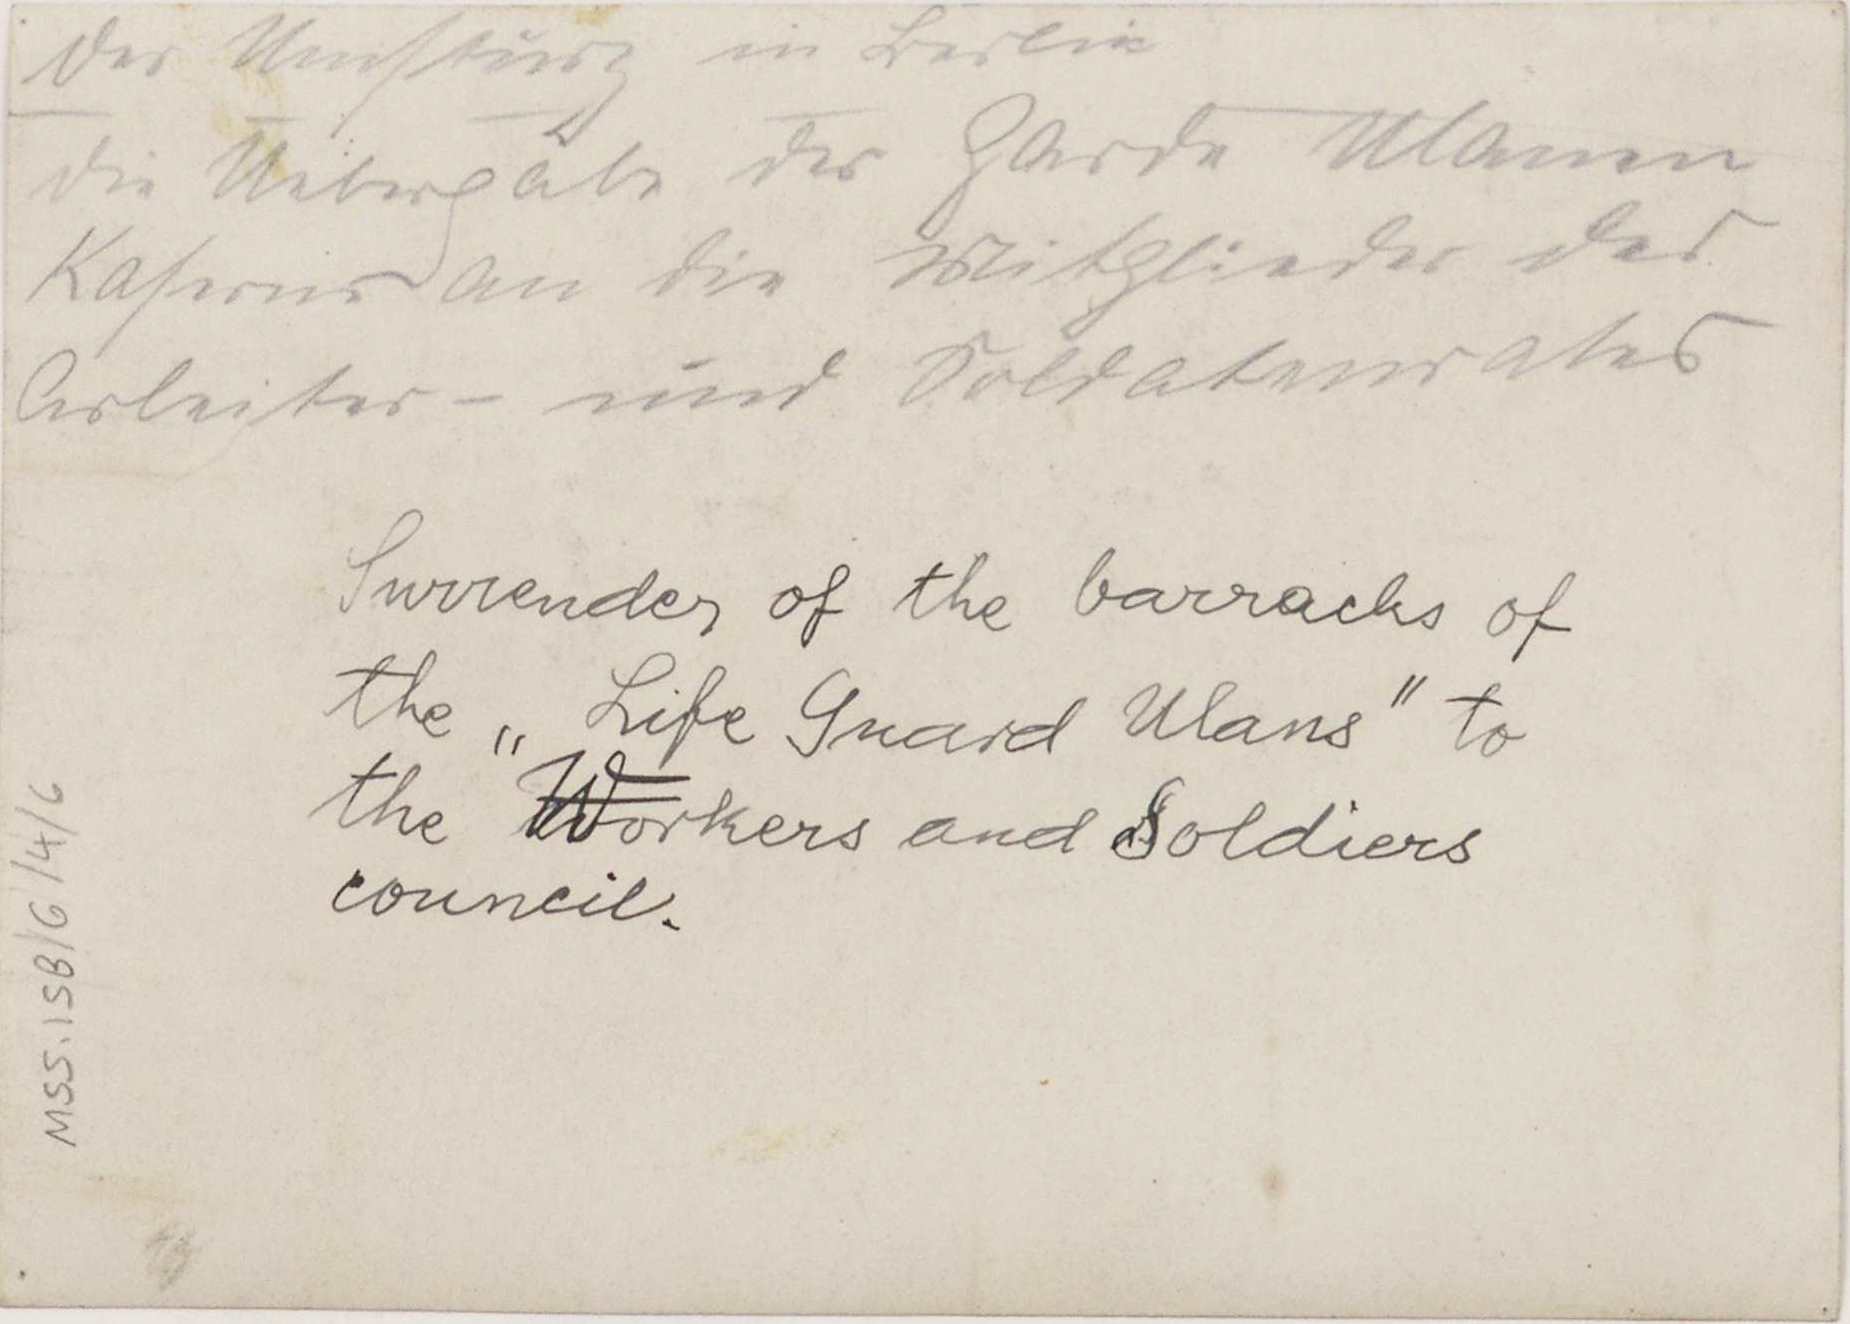 Der Umsturz in Berlin
Die Uebergabe der Garde Ulanen
Kaserne an die Mitglieder des
Arbeiter- und Soldatenrates
Surrender of the barracks of
the „Life Guard Ulans" to
the Workers and Soldiers
council.
MSS.15B/6/4/6